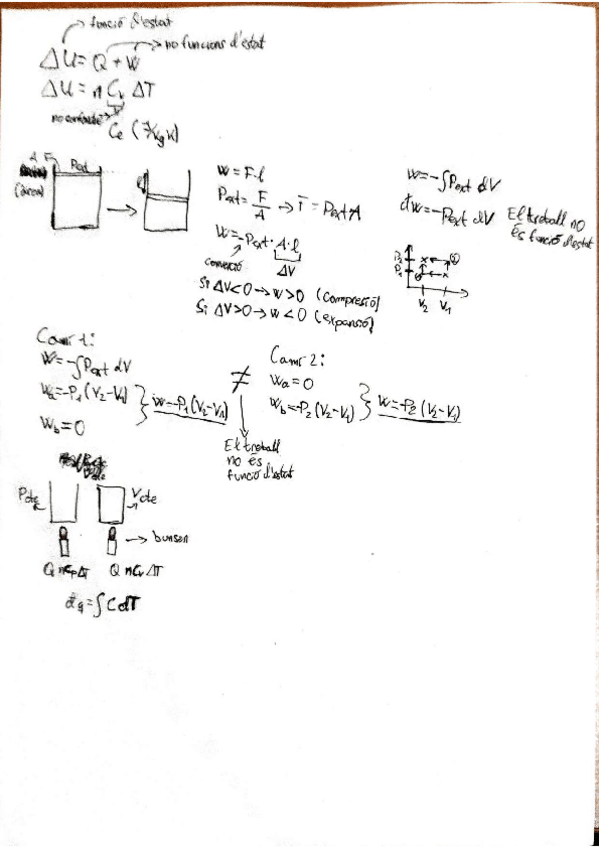 funció d'estat
no funcions d'estat
ΔU = Q + W
ΔU = n Cv ΔT
Ce (J/kg K)
A F Pext
(àrea)
l
W = F·l
Pext = F/A → F = Pext·A
W = -Pext · A · l
convenció ΔV
Si ΔV<0 → W>0 (compresió)
Si ΔV>0 → W<0 (expansió)
W = -∫Pext dV
đW = -Pext dV
El treball no
és funció d'estat
P2
P1
V2 V1
Camí 1:
W = -∫Pext dV
Wa = -P1 (V2-V1)
Wb = 0
W = -P1 (V2-V1)
≠
El treball
no és
funció d'estat
Camí 2:
Wa = 0
Wb = -P2 (V2-V1)
W = -P2 (V2-V1)
Pcte Vcte
→ bunsen
Q nCpΔT Q nCvΔT
đq = ∫C dT